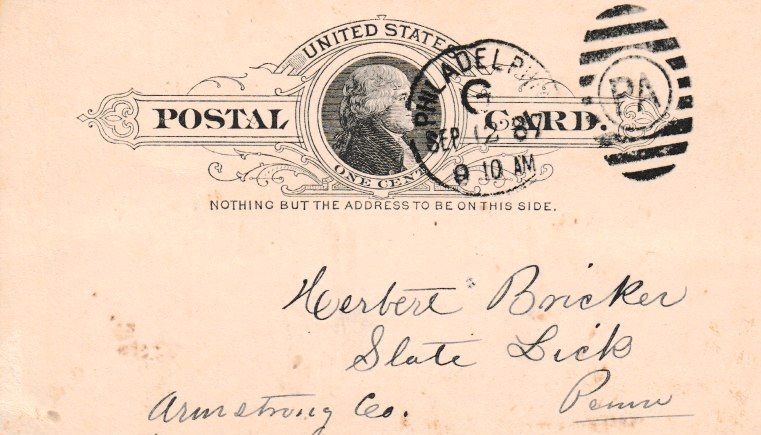 UNITED STATES
POSTAL CARD.
ONE CENT
PHILADELPHI
G
SEP 12 87
9 10 AM
PA
NOTHING BUT THE ADDRESS TO BE ON THIS SIDE.
Herbert Bricker
Slate Lick
Armstrong Co. Penna